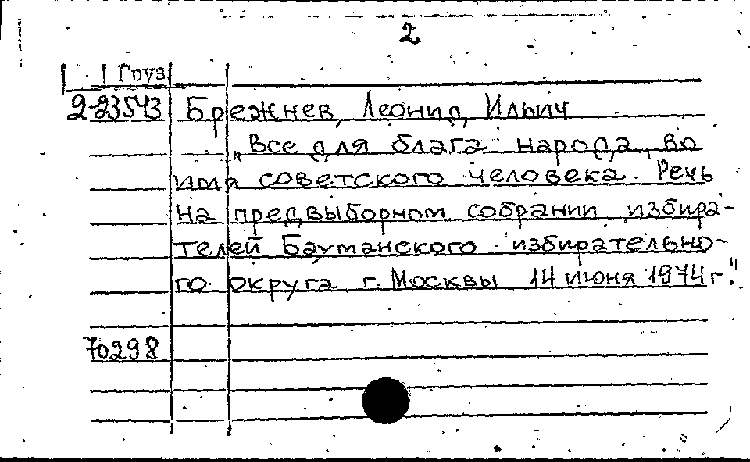 2
Груз
2-23543 Брежнев, Леонид Ильич
„Все для блага народа, во
имя советского человека. Речь
на предвыборном собрании избира-
телей Бауманского избирательно-
го округа г. Москвы 14 июня 1974 г."
70298